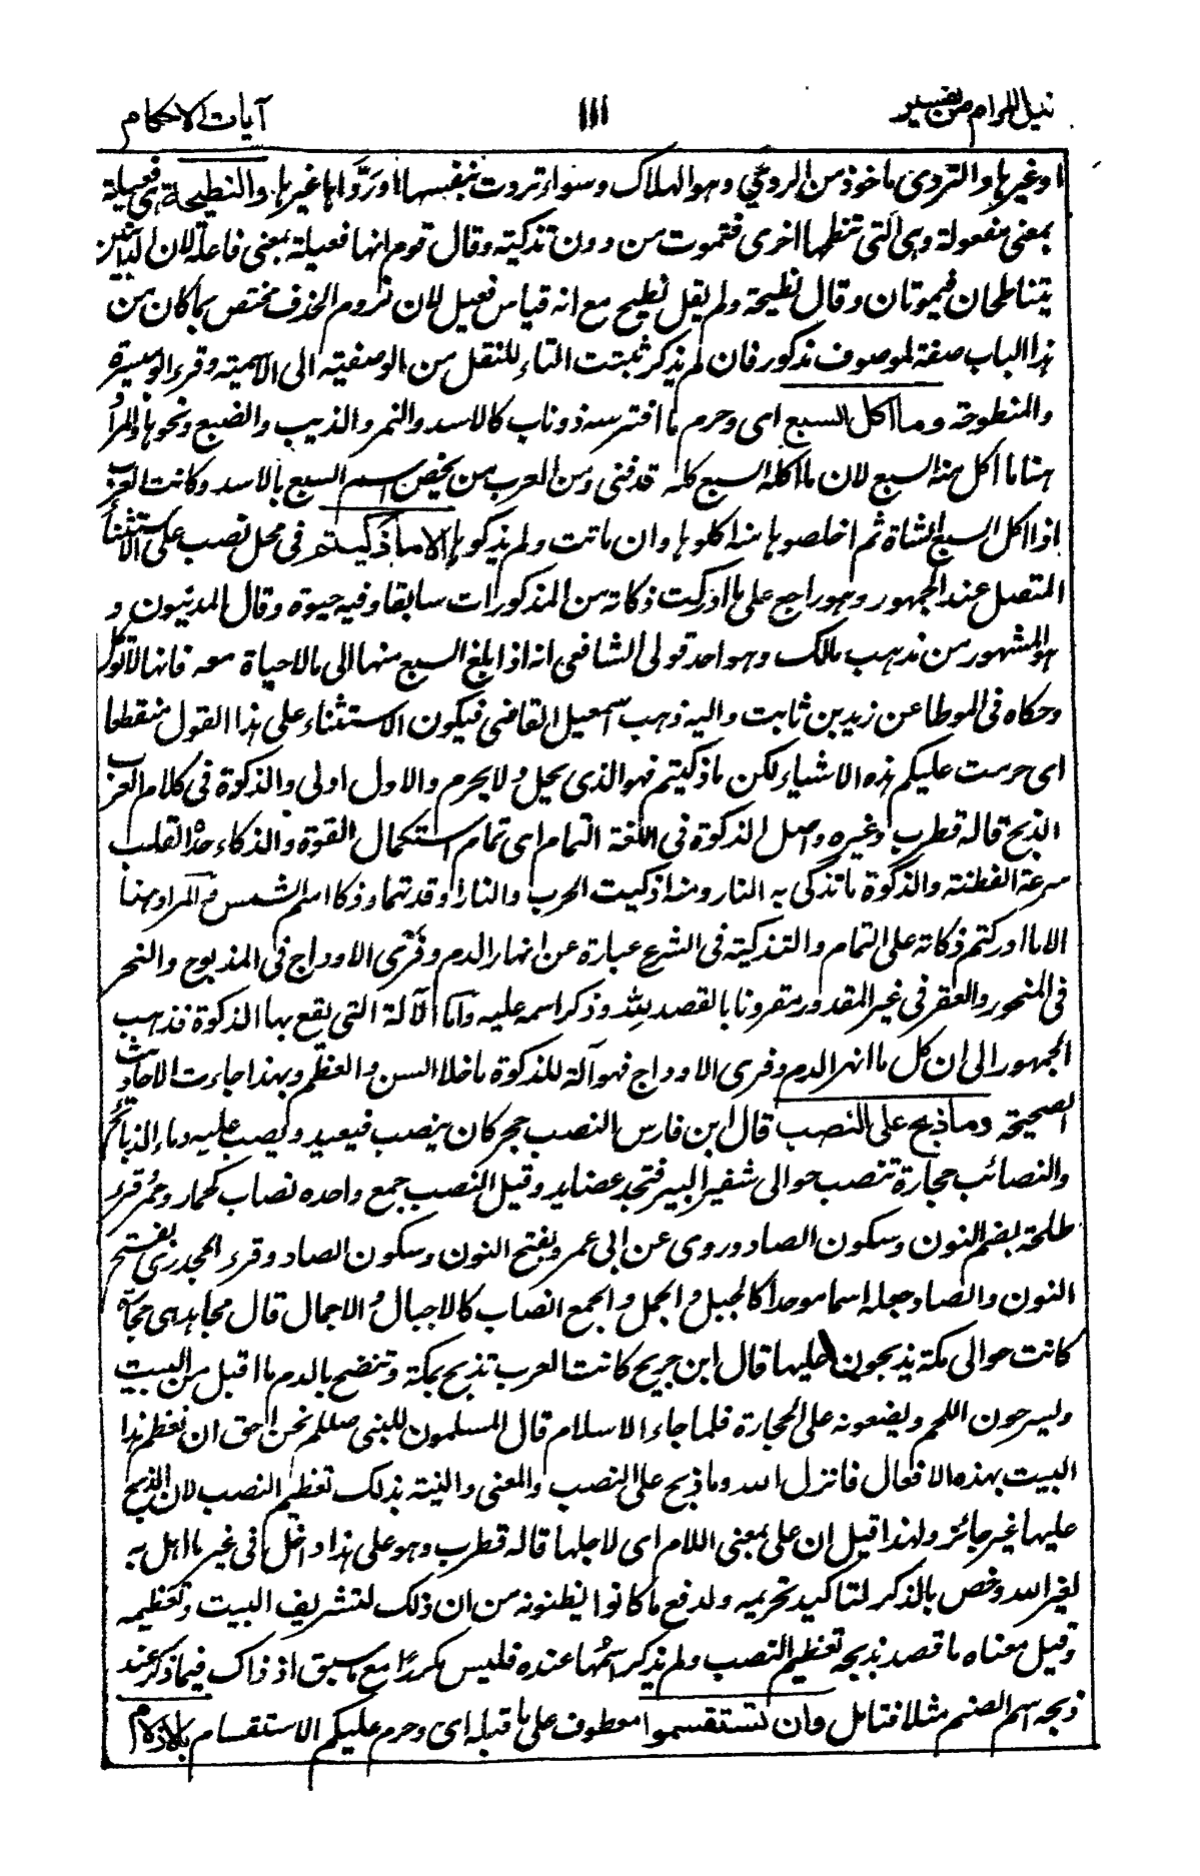 نيل المرام من تفسير
١١١
آيات الاحكام
او غيرها والتردى ماخوذ من الردى وهو الهلاك وسواء تردت بنفسها اوردّاها غيرها والنطيحة هى فعيلة
بمعنى مفعولة وهى التى تنطحها اخرى فتموت من دون تذكية وقال قوم انها فعيلة بمعنى فاعلة لان الدابتين
يتناطحان فيموتان وقال نطيحة ولم يقل نطيح مع انه قياس فعيل لان لزوم الحذف مختص بما كان من
هذا الباب صفة لموصوف مذكور فان لم يذكر ثبتت التاء للنقل من الوصفية الى الاسمية وقرء ابو ميسرة
والمنطوحة وما اكل السبع اى وحرم ما افترسه ذو ناب كالاسد والنمر والذيب والضبع ونحوها والمراد
هنا ما اكل منه السبع لان ما اكله السبع كله قد فنى ومن العرب من يخص اسم السبع بالاسد وكانت العرب
اذا اكل السبع الشاة ثم اخلصوها منه اكلوها وان ماتت ولم يذكوها الا ما ذكيتم فى محل نصب على الاستثناء
المتصل عند الجمهور وهو راجع على ما ادركت ذكاته من المذكورات سابقا وفيه حيوة وقال المدنيون و
هو المشهور من مذهب مالك وهو احد قولى الشافعى انه اذا بلغ السبع منها الى ما لا حياة معه فانها لا تؤكل
وحكاه فى الموطا عن زيد بن ثابت واليه ذهب اسمعيل القاضى فيكون الاستثناء على هذا القول منقطعا
اى حرمت عليكم هذه الاشياء لكن ما ذكيتم فهو الذى يحل ولا يحرم والاول اولى والذكوة فى كلام العرب
الذبح قاله قطرب وغيره واصل الذكوة فى اللغة التمام اى تمام استكمال القوة والذكاء حدة القلب
سرعة الفطنة والذكوة ما تذكى به النار ومنه اذكيت الحرب والنار اوقدتهما وذكا اسم الشمس والمراد هنا
الا ما ادركتم ذكاته على التمام والتذكية فى الشرع عبارة عن انهار الدم وفَرْى الاوداج فى المذبوح والنحر
فى المنحور والعقر فى غير المقدور مقرونا بالقصد لله وذكر اسمه عليه واما الآلة التى يقع بها الذكوة فذهب
الجمهور الى ان كل ما انهر الدم وفرى الاوداج فهو آلة للذكوة ما خلا السن والعظم وبهذا جاءت الاحاديث
الصحيحة وما ذبح على النصب قال ابن فارس النصب حجر كان ينصب فيعبد ويصب عليه دماء الذبائح
والنصائب حجارة تنصب حوالى شفير البير فتجعد عضايد وقيل النصب جمع واحده نصاب كحمار وحُمر قرء
طلحة بضم النون وسكون الصاد وروى عن ابى عمرو بفتح النون وسكون الصاد وقرء الجحدرى بفتح
النون والصاد جعله اسما موحدا كالجبل والجمل والجمع انصاب كالاجبال والاجمال قال مجاهد هى حجارة
كانت حوالى مكة يذبحون عليها قال ابن جريج كانت العرب تذبح بمكة وتنضح بالدم ما اقبل من البيت
ويسرحون اللحم ويضعونه على الحجارة فلما جاء الاسلام قال المسلمون للنبى صللم نحن احق ان نعظم هذا
البيت بهذه الافعال فانزل الله وما ذبح على النصب والمعنى والنية بذلك تعظيم النصب لان الذبح
عليها غير جائز ولهذا قيل ان على بمعنى اللام اى لاجلها قاله قطرب وهو على هذا داخل فى غير ما اهل به
لغير الله وخص بالذكر لتاكيد تحريمه ولدفع ما كانوا يظنونه من ان ذلك لتشريف البيت وتعظيمه
وقيل معناه ما قصد بذبحه تعظيم النصب ولم يذكر اسمها عنده فليس مكررا مع ما سبق اذ ذاك فيما ذكر عند
ذبحه اسم الصنم مثلا فتامل وان تستقسموا معطوف على ما قبله اى وحرم عليكم الاستقسام بالازلام